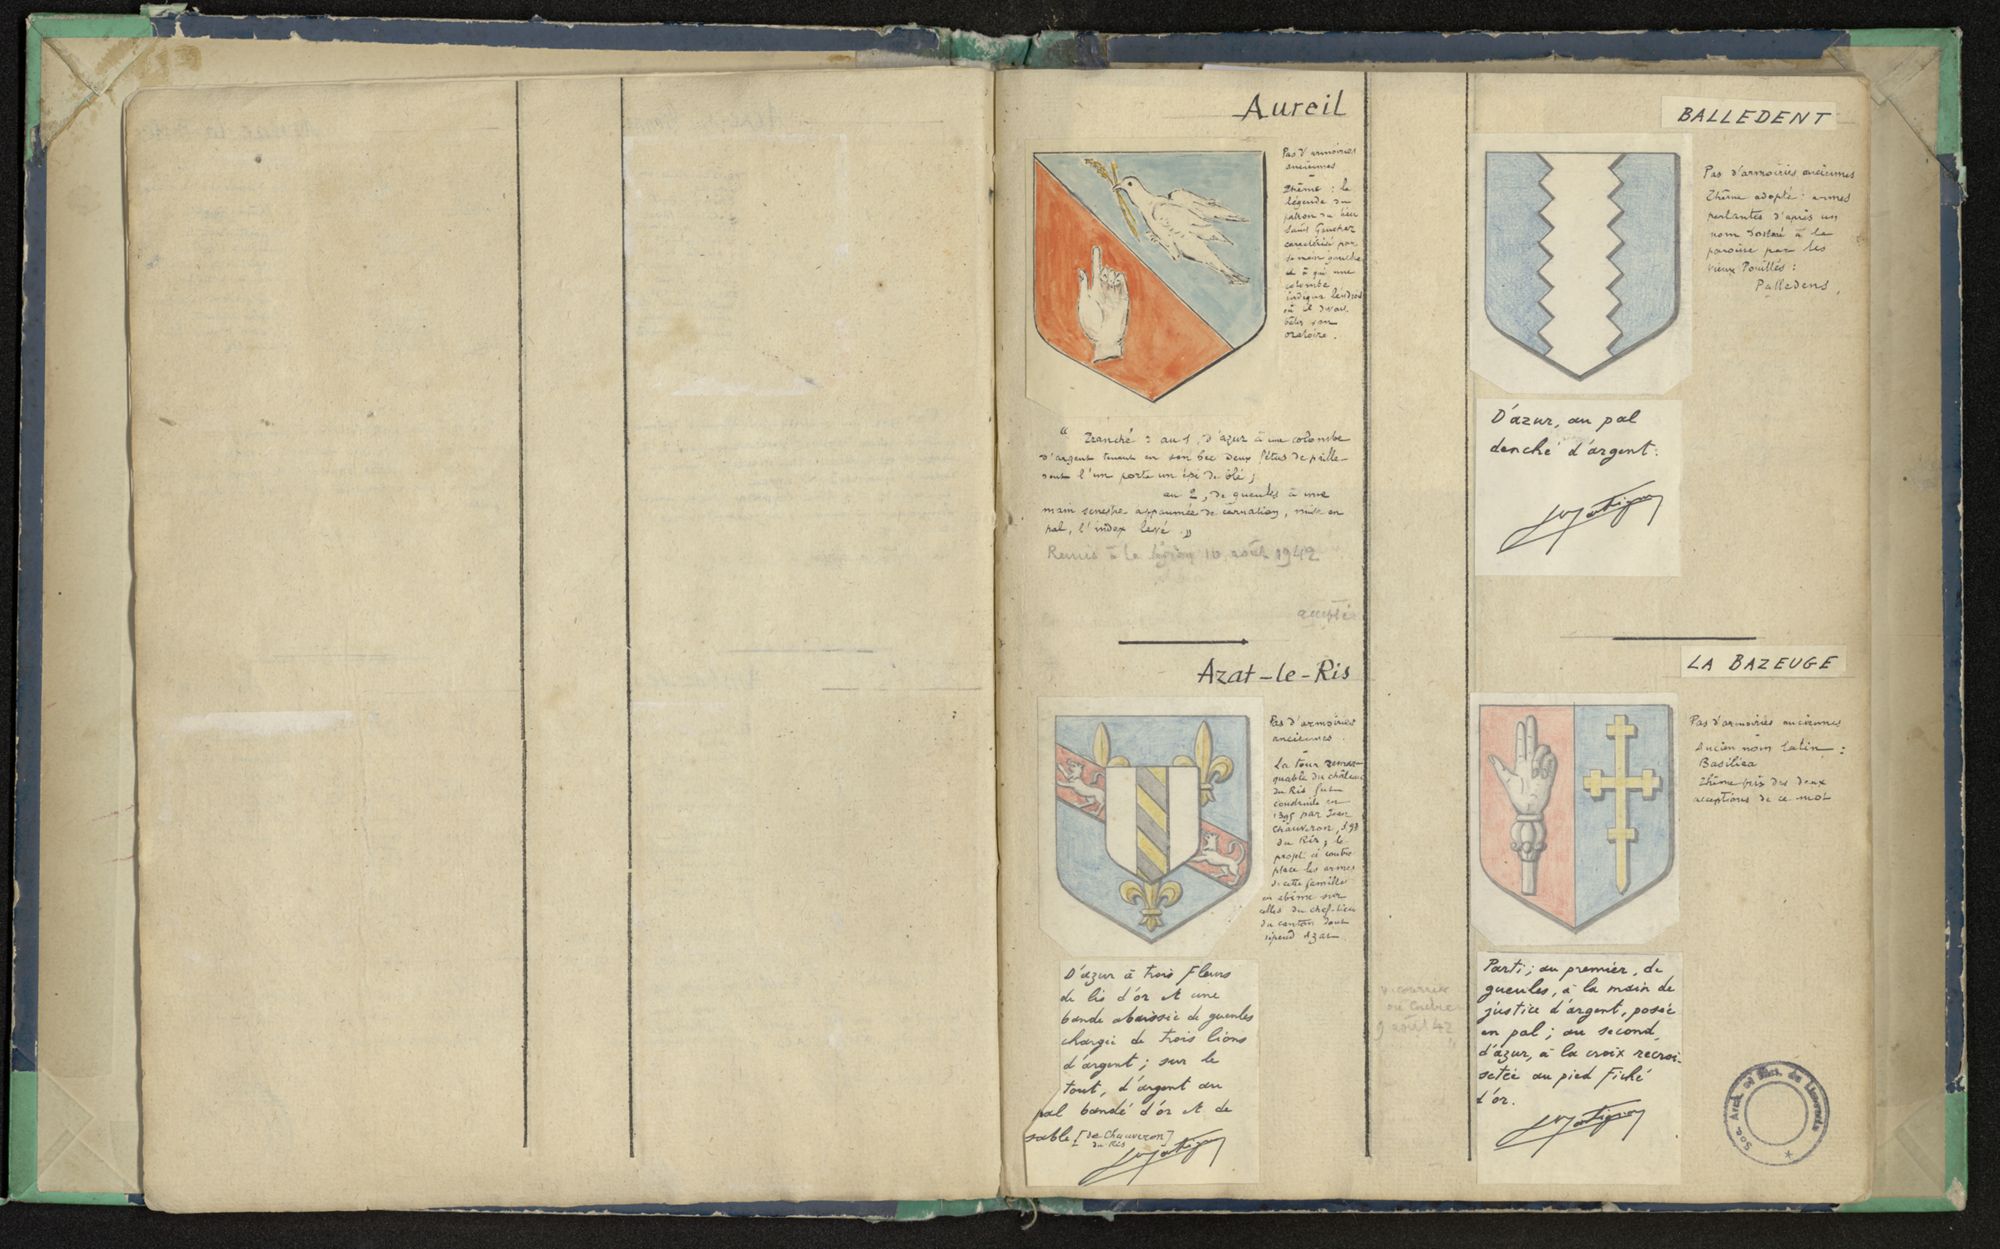 Aureil
Pas d'armoiries
anciennes
-
Thème : la
légende du
patron du lieu
saint Gaucher
caractérisé par
sa main gauche
et à qui une
colombe
indique l'endroit
où il devait
bâtir son
oratoire.
" Tranché : au 1, d'azur à une colombe
d'argent tenant en son bec deux fétus de paille
dont l'un porte un épi de blé ;
au 2, de gueules à une
main senestre appaumée de carnation, mise en
pal, l'index levé. "
Remis à la 10 août 1942
accepté
Azat-le-Ris
Pas d'armoiries
anciennes.
-
La tour remar-
quable du château
du Ris fut
construite en
1395 par Jean
Chauveron, sgr
du Ris ; le
projet ci contre
place les armes
de cette famille
en abîme sur
celles du chef-lieu
du canton dont
dépend Azat
D'azur à trois fleurs
de lis d'or et une
bande abaissée de gueules
chargée de trois lions
d'argent ; sur le
tout, d'argent au
pal bandé d'or et de
sable [de Chauveron]
du Ris
9 août 42
BALLEDENT
Pas d'armoiries anciennes
Thème adopté : armes
parlantes d'après un
nom donné à la
paroisse par les
vieux Pouillés :
Palledens.
D'azur, au pal
denché d'argent.
LA BAZEUGE
Pas d'armoiries anciennes
-
Ancien nom latin :
Basilica
Thème pris des deux
acceptions de ce mot
Parti ; au premier, de
gueules, à la main de
justice d'argent, posée
en pal ; au second,
d'azur, à la croix recroi-
setée au pied fiché
d'or.
Soc. Arch. et Hist. du Limousin